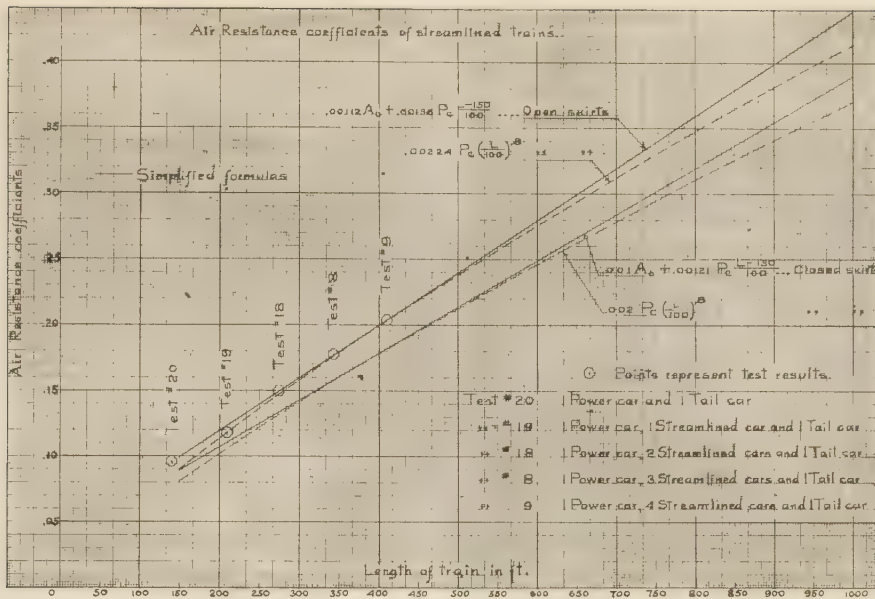 Air Resistance coefficients of streamlined trains.
.40
.00112 A₀ + .00136 P_c L-150/100 .... Open skirts
.35
.00224 P_c (L/100)^.8 " "
Simplified formulas
.30
Air Resistance coefficients
.25
.001 A₀ + .00121 P_c L-150/100 ... Closed skirts
.002 P_c (L/100)^.8 " "
.20
Test #20
Test #19
Test #18
Test #8
Test #9
.15
⊙ Points represent test results.
Test #20 1 Power car and 1 Tail car
" #19 1 Power car, 1 Streamlined car and 1 Tail car
.10
" #18 1 Power car, 2 Streamlined cars and 1 Tail car
" #8 1 Power car, 3 Streamlined cars and 1 Tail car
.05
" 9 1 Power car, 4 Streamlined cars and 1 Tail car
Length of train in ft.
0 50 100 150 200 250 300 350 400 450 500 550 600 650 700 750 800 850 900 950 1000